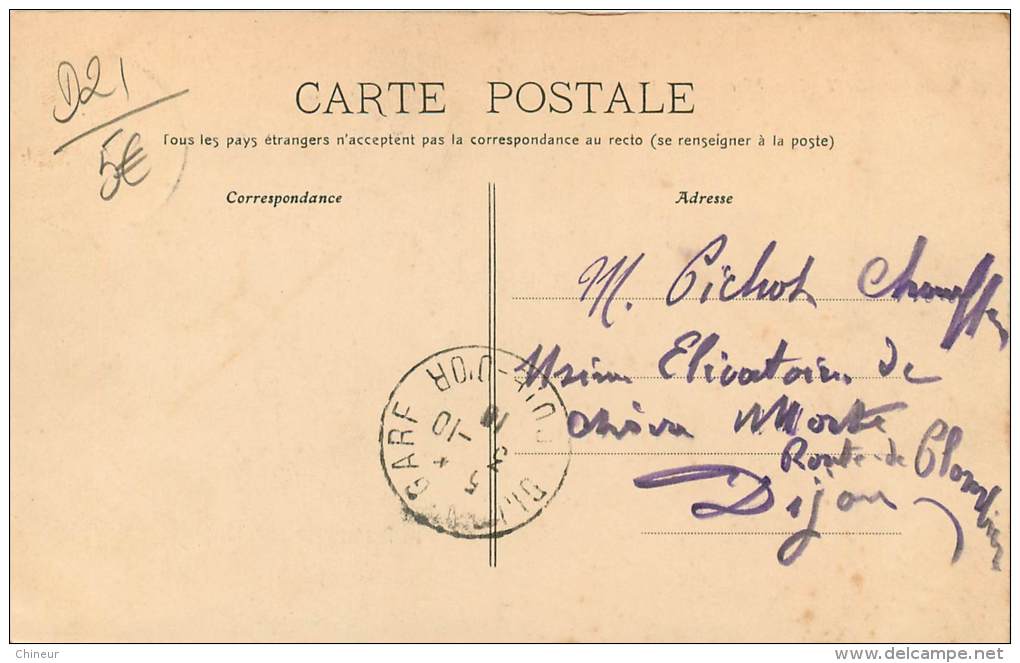 D21
5€
CARTE POSTALE
Tous les pays étrangers n'acceptent pas la correspondance au recto (se renseigner à la poste)
Correspondance
Adresse
M. Pichot Chauffeur
Usine Elivatoire de
Morte
Route de Plombières
Dijon
DIJON GARE COTE-D'OR
Chineur
www.delcampe.net